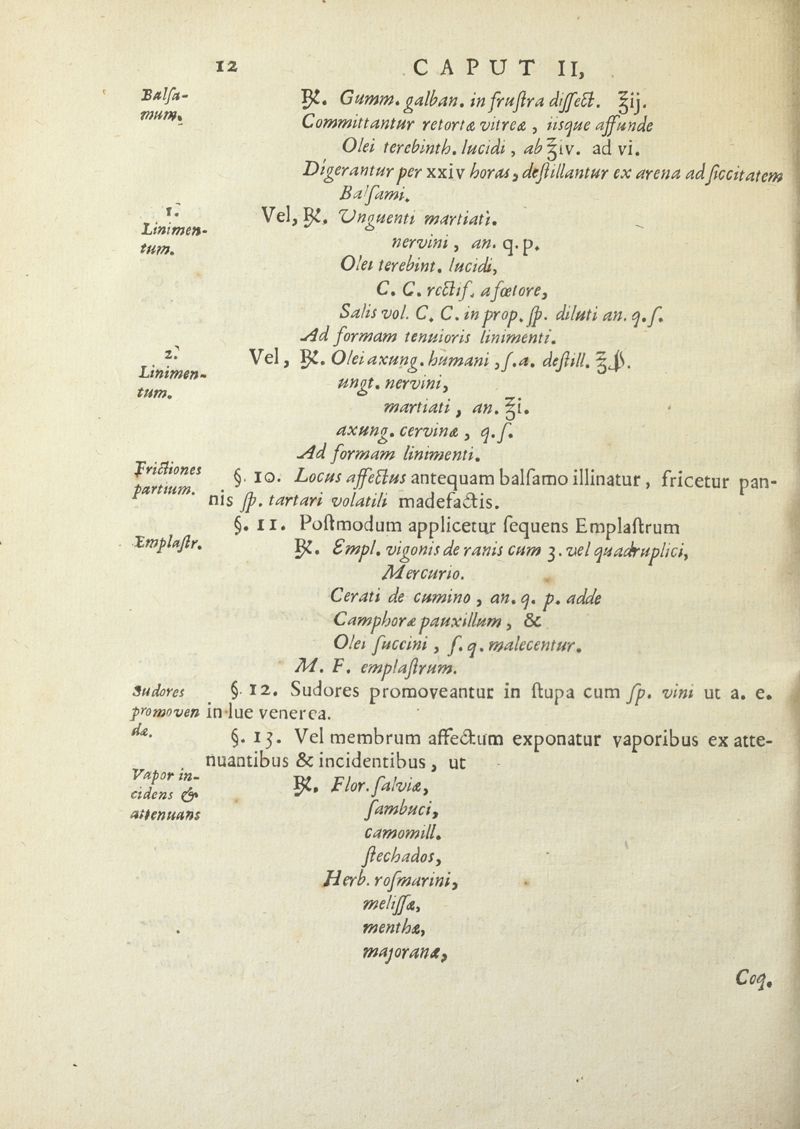 12 CAPUT II,
Balſa-
mum.
℞. Gumm. galban. in fruſtra diſſect. ℥ij.
Committantur retortæ vitreæ, iisque affunde
Olei terebinth. lucidi, ab ℥iv. ad vi.
Digerantur per xxiv horas, deſtillantur ex arena ad ſiccitatem
Balſami.
1.
Linimen-
tum.
Vel, ℞. Unguenti martiati.
nervini, an. q. p.
Olei terebint. lucidi,
C. C. rectif. a fœtore,
Salis vol. C. C. in prop. ſp. diluti an. q. ſ.
Ad formam tenuioris linimenti.
2.
Linimen-
tum.
Vel, ℞. Olei axung. humani, ſ. a. deſtill. ℥ß.
ungt. nervini,
martiati, an. ℥i.
axung. cervinæ, q. ſ.
Ad formam linimenti.
Frictiones
partium.
§. 10. Locus affectus antequam balſamo illinatur, fricetur pan-
nis ſp. tartari volatili madefactis.
§. 11. Poſtmodum applicetur ſequens Emplaſtrum
Emplaſtr.
℞. Empl. vigonis de ranis cum 3. vel quadruplici,
Mercurio.
Cerati de cumino, an. q. p. adde
Camphoræ pauxillum, &
Olei ſuccini, ſ. q. malecentur.
M. F. emplaſtrum.
Sudores
promoven
dæ.
§. 12. Sudores promoveantur in ſtupa cum ſp. vini ut a. e.
in lue venerea.
§. 13. Vel membrum affectum exponatur vaporibus ex atte-
nuantibus & incidentibus, ut
Vapor in-
cidens &
attenuans
℞. Flor. ſalviæ,
ſambuci,
camomill.
ſtechados,
Herb. roſmarini,
meliſſæ,
menthæ,
majoranæ,
Coq.